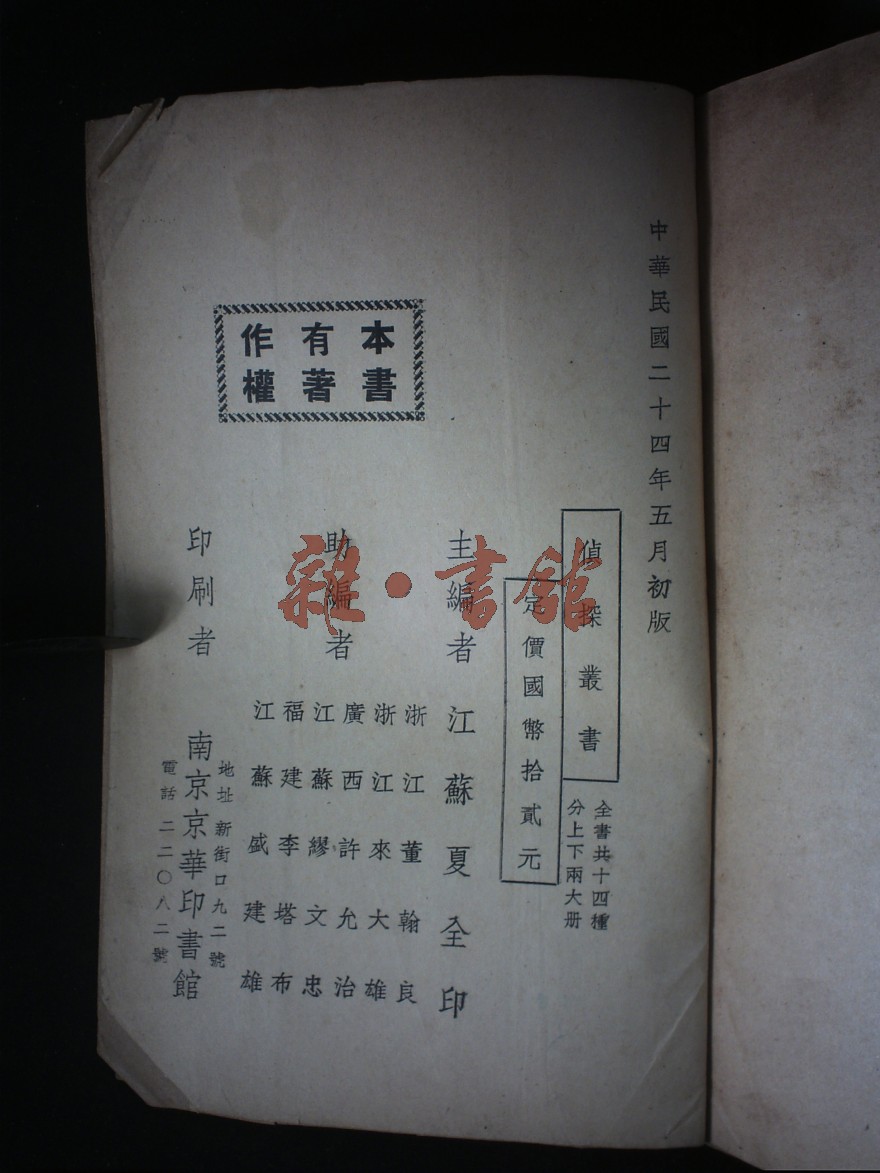 中華民國二十四年五月初版
偵探叢書
全書共十四種
分上下兩大册
定價國幣拾貳元
主編者 江蘇夏全印
助編者
浙江董翰良
浙江來大雄
廣西許允治
江蘇繆文忠
福建李塔布
江蘇盛建雄
印刷者 南京京華印書館
地址 新街口九二號
電話 二二〇八二號
本書
有著
作權
雜·書館